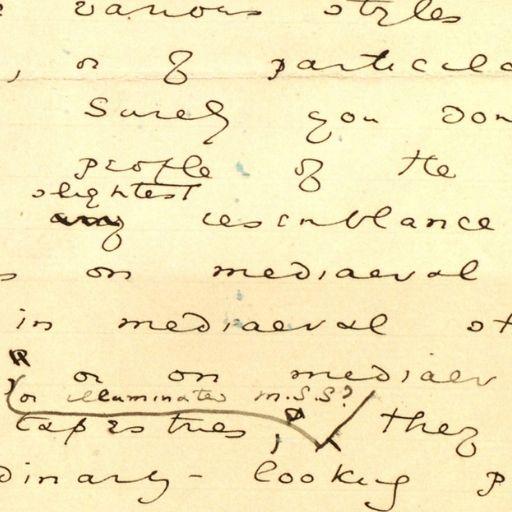 various styles
, or of particula
Surely you don
people of the
slightest
any resemblance
s on mediaeval
in mediaeval st
or on mediaev
or illuminated M.S.S?
tapestries, they
dinary-looking p